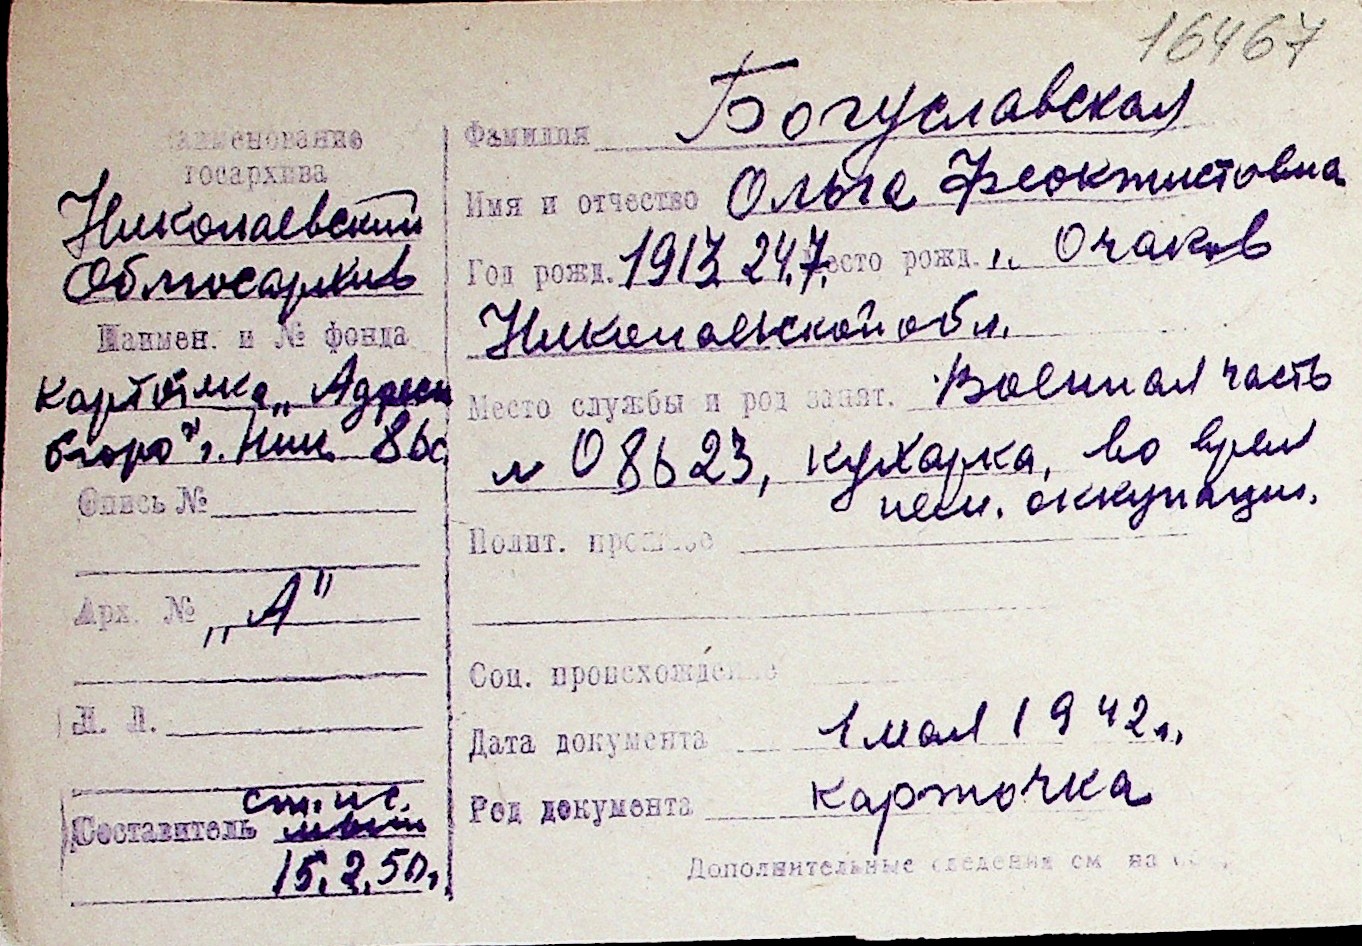 16467
Наименование
госархива
Николаевский
Облгосархив
Наимен. и № фонда
картотека „Адресн
бюро" г. Ник.
Опись №
Арх. № „А"
Л. Л.
Составитель ст. ис.
15.2.50г.
Фамилия Богуславская
Имя и отчество Ольга Феоктистовна
Год рожд. 1913 24.7. Место рожд. г. Очаков
Николаевской обл.
Место службы и род занят. Военная часть
№ 08623, кухарка, во врем
нем. оккупации.
Полит. прошлое
Соц. происхождение
Дата документа 1 мая 1942 г.
Род документа карточка
Дополнительные сведения см. на об.